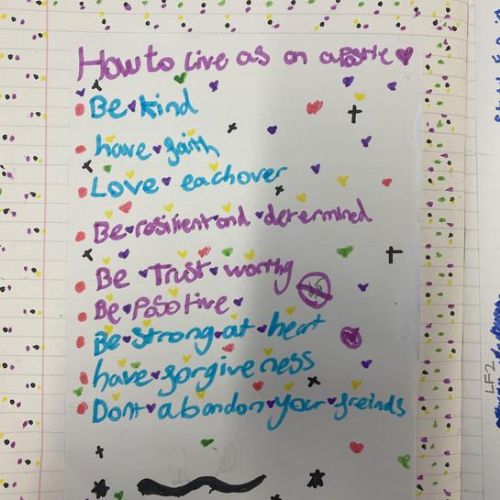 How to Live as an apostle
Be kind
have faith
Love eachover
Be resilient and determined
Be Trust worthy
Be Posotive
Be Strong at heart
have forgiveness
Dont abandon your freinds
LF2